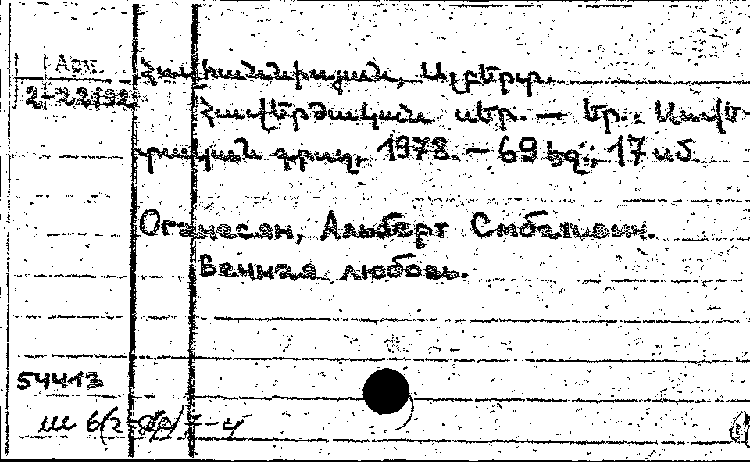 Арм.
2-22192
Հովհաննիսյան, Ալբերտ.
Հավերժական սեր. — Եր.: Սովե-
տական գրող, 1978. — 69 էջ; 17 սմ.
Оганесян, Альберт Смбатович.
Вечная любовь.
54413